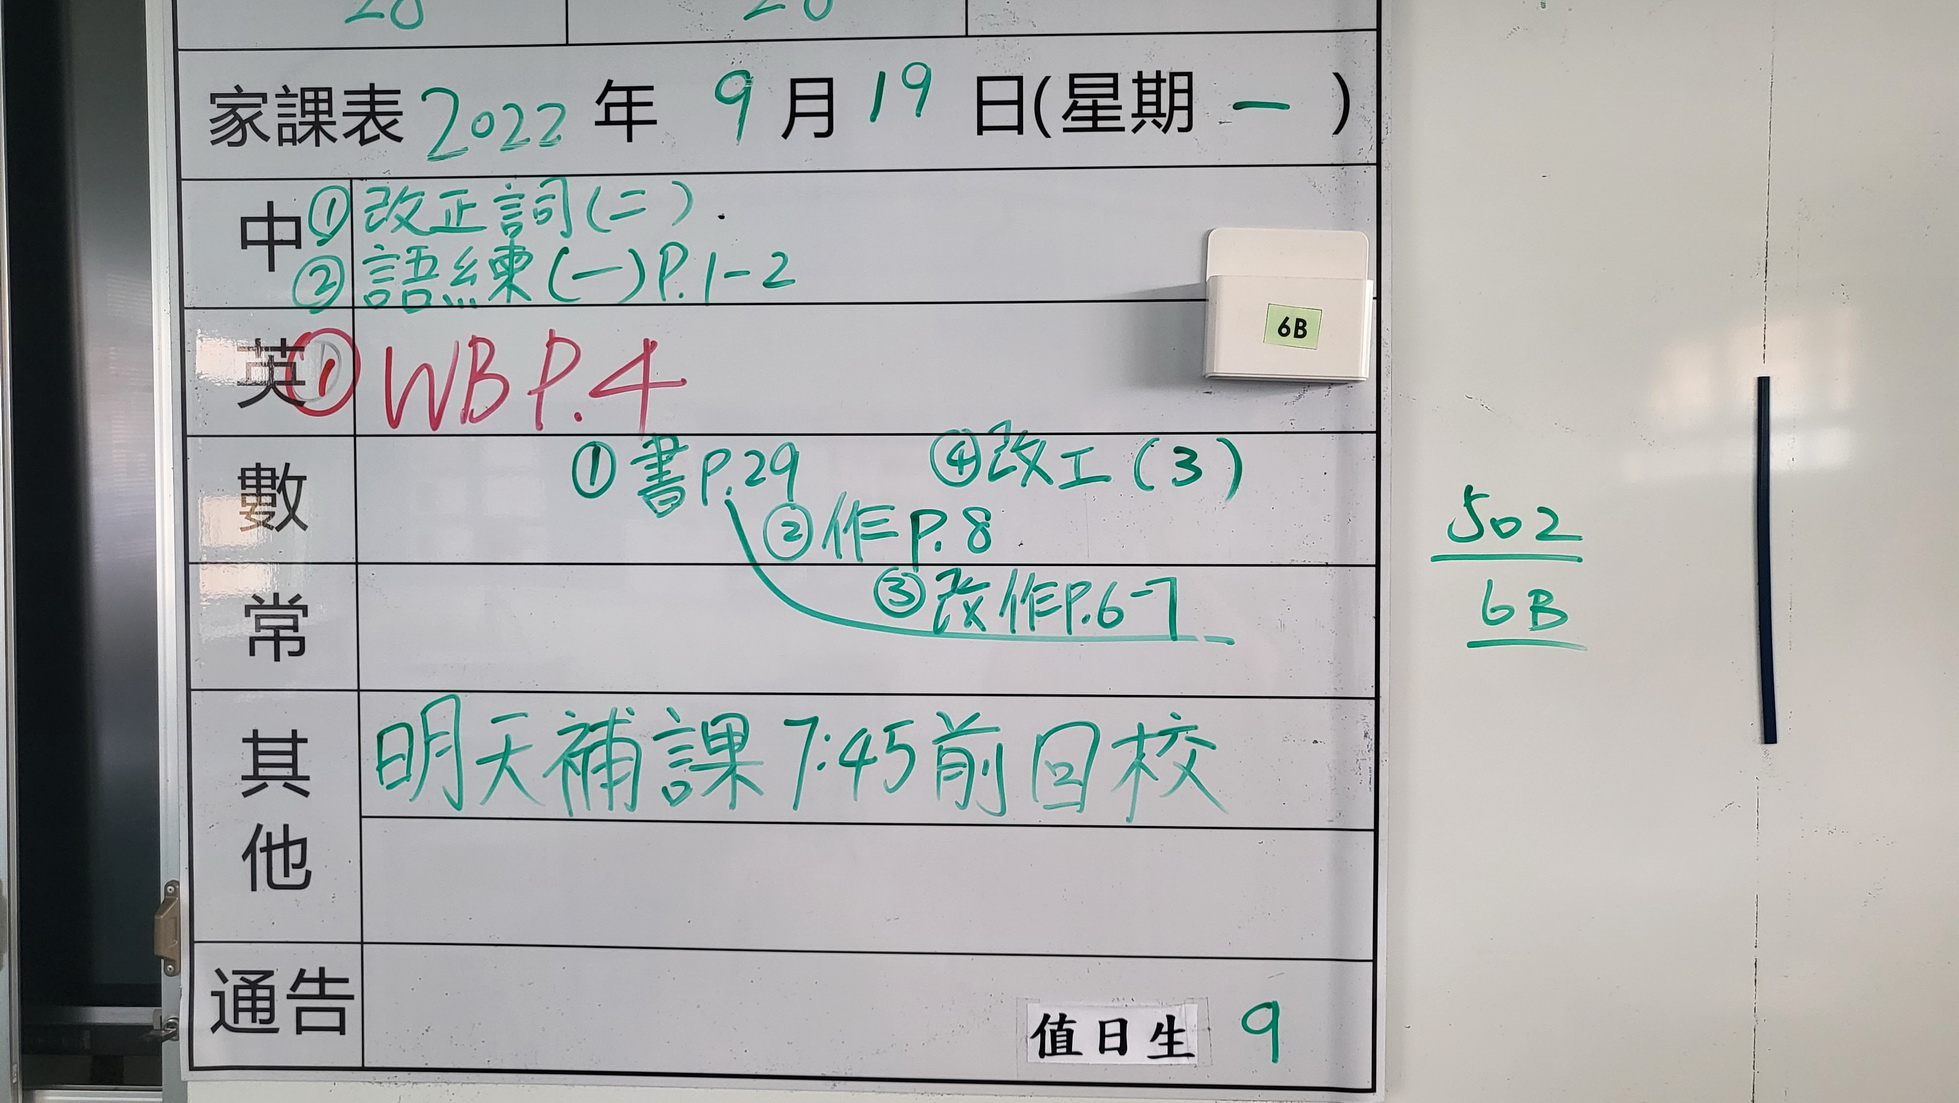 家課表 2022 年 9 月 19 日(星期 一 )
中 ① 改正詞(二).
② 語練(一)P.1-2
6B
英 ① WB P.4
數 ① 書P.29 ④改工(3)
②作P.8
③改作P.6-7
常
502
6B
其他 明天補課7:45前回校
通告
值日生 9